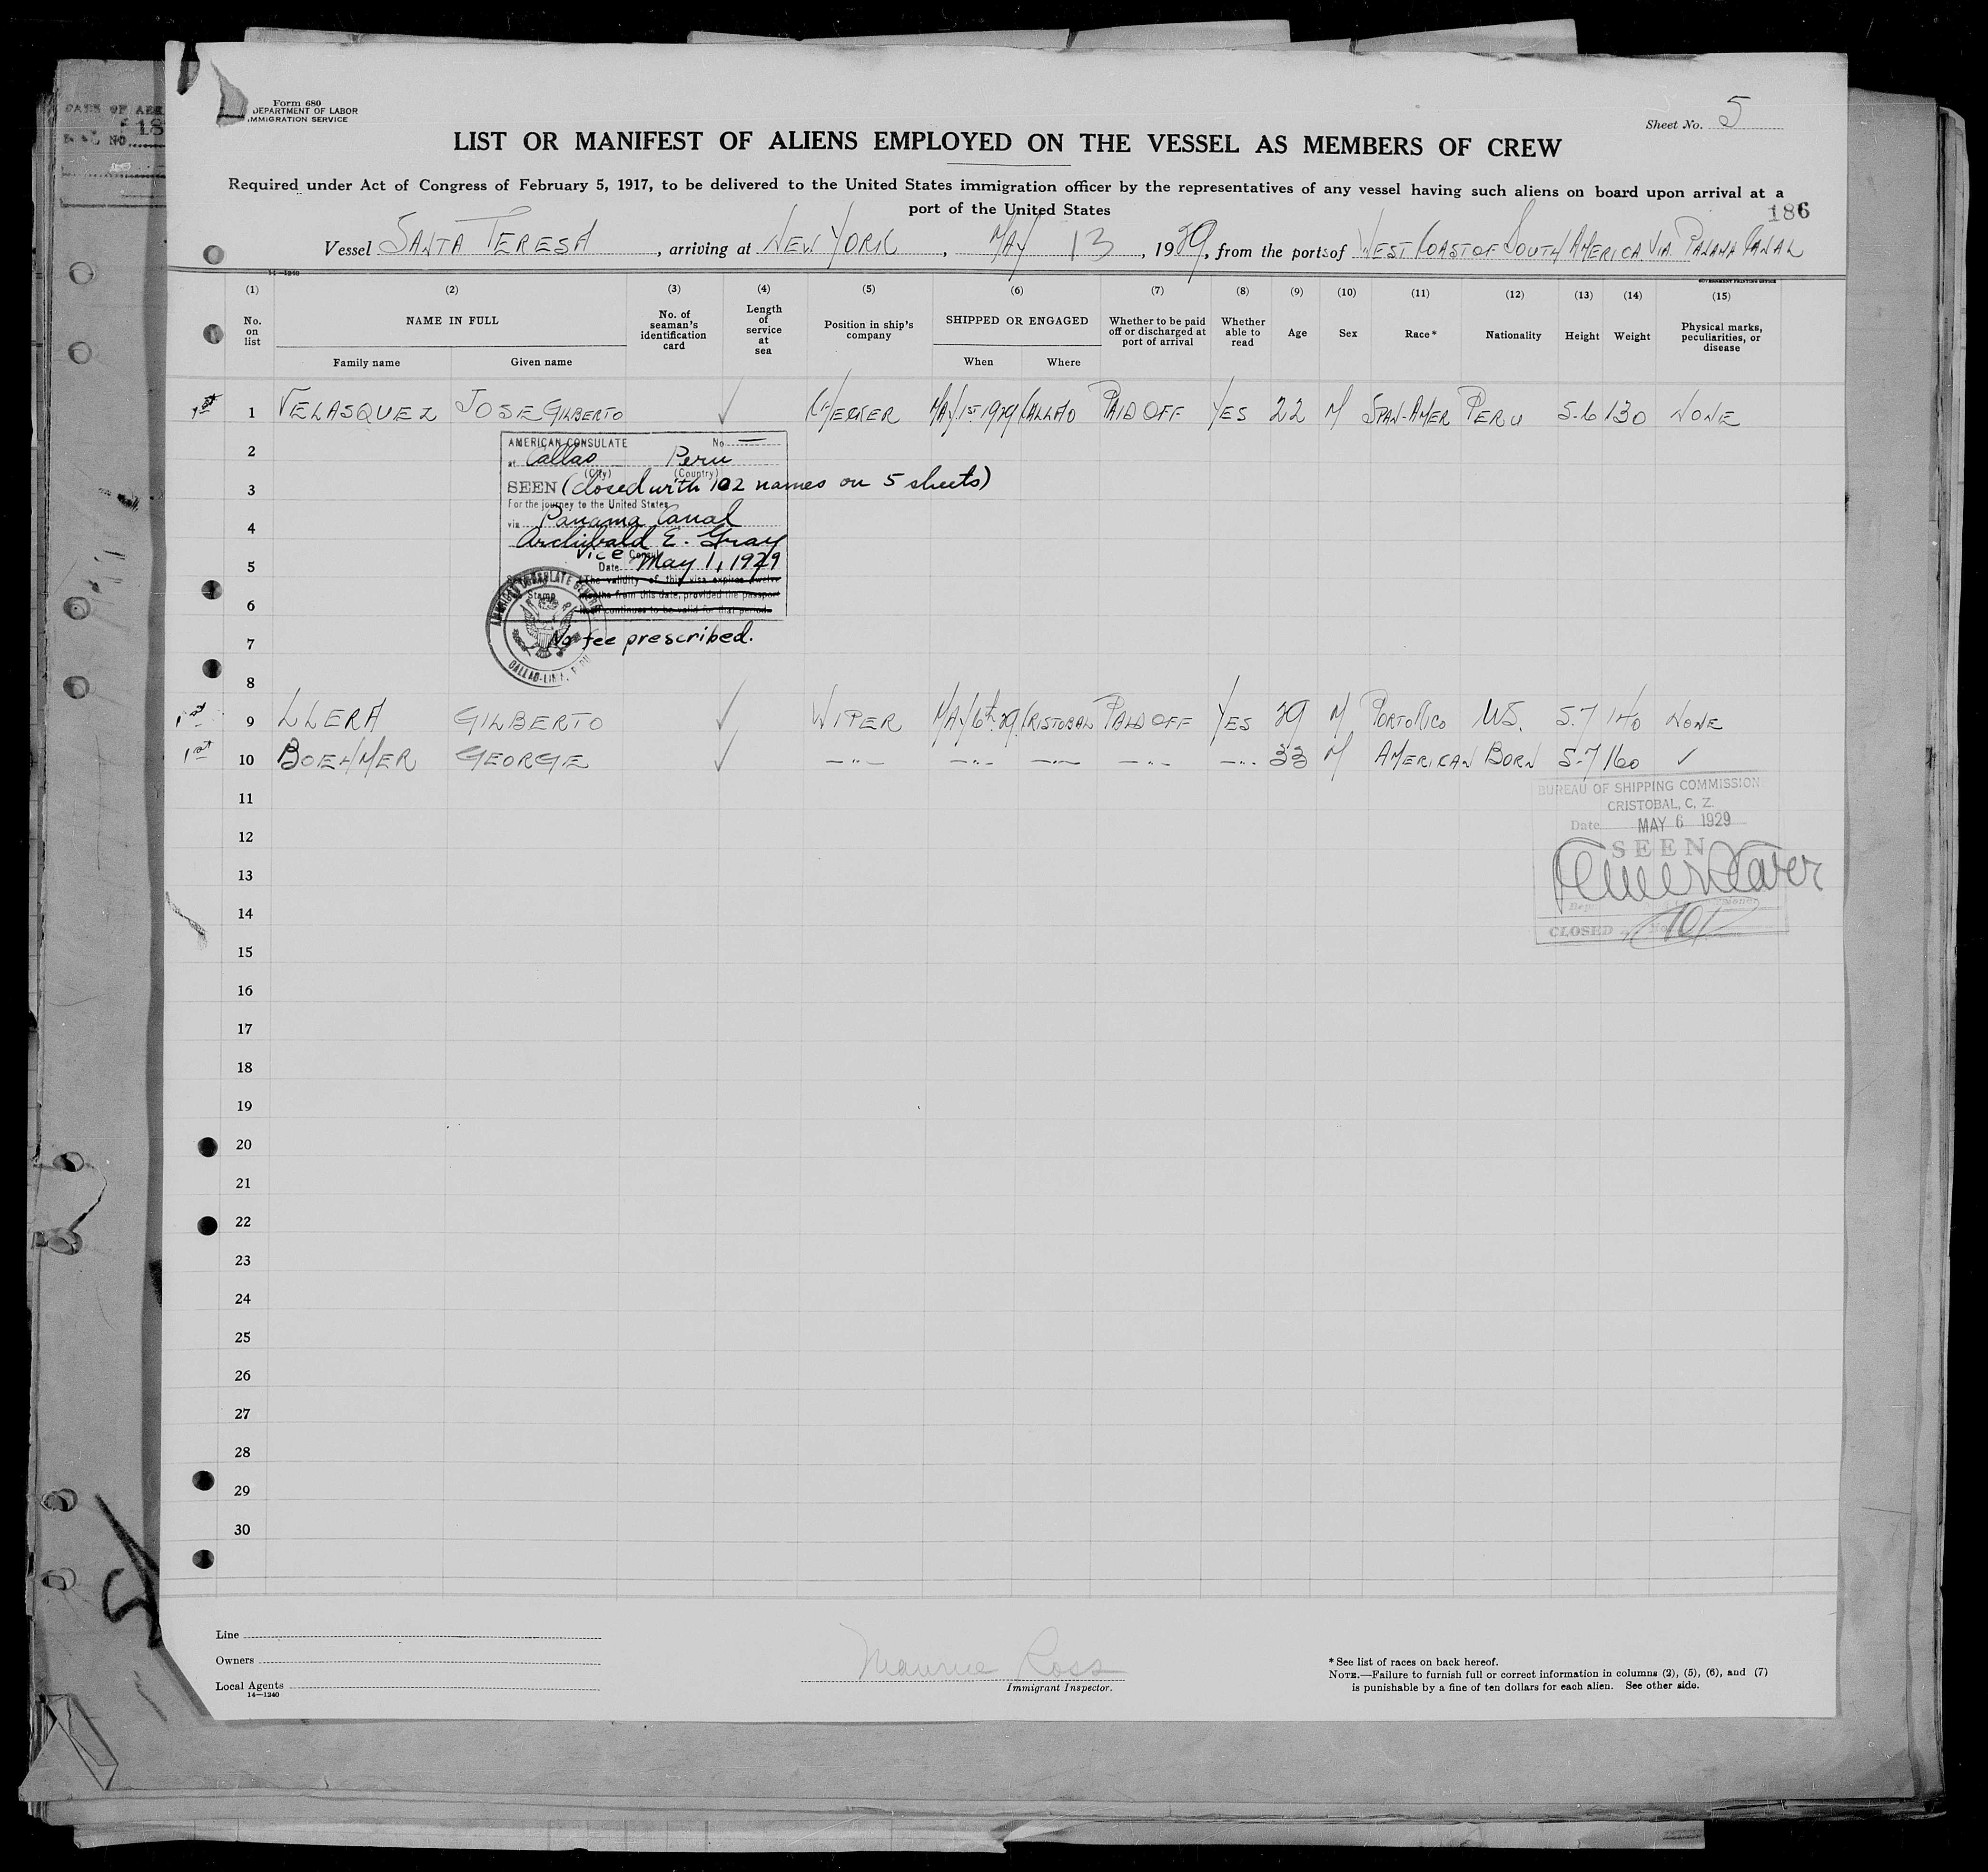 Form 680
DEPARTMENT OF LABOR
IMMIGRATION SERVICE
Sheet No. 5
LIST OR MANIFEST OF ALIENS EMPLOYED ON THE VESSEL AS MEMBERS OF CREW
Required under Act of Congress of February 5, 1917, to be delivered to the United States immigration officer by the representatives of any vessel having such aliens on board upon arrival at a
port of the United States
186
Vessel SANTA TERESA, arriving at NEW YORK, MAY 13, 1929, from the ports of WEST COAST OF SOUTH AMERICA VIA PANAMA CANAL
14-1240
GOVERNMENT PRINTING OFFICE
(1) (2) (3) (4) (5) (6) (7) (8) (9) (10) (11) (12) (13) (14) (15)
No. on list NAME IN FULL No. of seaman's identification card Length of service at sea Position in ship's company SHIPPED OR ENGAGED Whether to be paid off or discharged at port of arrival Whether able to read Age Sex Race* Nationality Height Weight Physical marks, peculiarities, or disease
Family name Given name When Where
1st 1 VELASQUEZ JOSE GILBERTO ✓ CHECKER MAY 1ST 1929 CALLAO PAID OFF YES 22 M SPAN-AMER PERU 5-6 130 NONE
2
3
4
5
6
7
8
AMERICAN CONSULATE No. —
at Callao Peru
(City) (Country)
SEEN (closed with 102 names on 5 sheets)
For the journey to the United States
via Panama Canal
Archibald E. Gray
Vice Consul
Date May 1, 1929
The validity of this visa expires twelve
months from this date, provided the passport
continues to be valid for that period.
Stamp
AMERICAN CONSULATE GENERAL
CALLAO-LIMA, PERU
No fee prescribed.
1st 9 LLERA GILBERTO ✓ WIPER MAY 6th 29 CRISTOBAL PAID OFF YES 29 M PORTO RICO U.S. 5-7 140 NONE
1st 10 BOEHMER GEORGE ✓ —"— —"— —"— —"— —"— 33 M AMERICAN BORN 5-7 160 ✓
BUREAU OF SHIPPING COMMISSION
CRISTOBAL, C. Z.
Date MAY 6 1929
SEEN
CLOSED
11
12
13
14
15
16
17
18
19
20
21
22
23
24
25
26
27
28
29
30
Line
Owners
Local Agents
14-1240
Maurice Ross
Immigrant Inspector.
* See list of races on back hereof.
NOTE.—Failure to furnish full or correct information in columns (2), (5), (6), and (7)
is punishable by a fine of ten dollars for each alien. See other side.